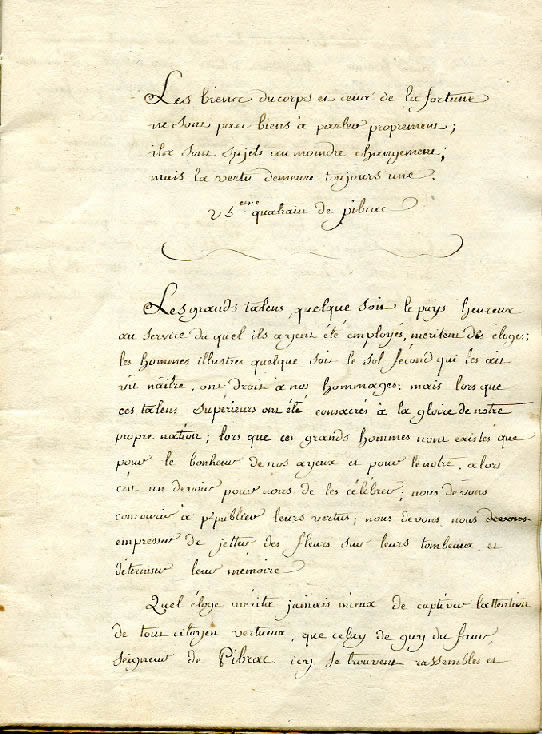 Les biens du corps et ceux de la fortune
ne sont pas biens à parler proprement;
ils sont sujets au moindre changement;
mais la vertu demeure toujours une.
25eme quatrain de pibrac
Les grands talens, quelque soit le pays heureux
au service du quel ils ayent été employés, méritent des éloges;
les hommes illustres quelque soit le sol fécond qui les ait
vû naître, ont droit à nos hommages; mais lors que
ces talens supérieurs ont été consacrés à la gloire de notre
propre nation; lors que ces grands hommes n'ont existés que
pour le bonheur de nos ayeux et pour le notre, alors
c'est un devoir pour nous de les célébrer; nous devons
concourir à publier leurs vertus; nous devons nous
empresser de jetter des fleurs sur leurs tombeaux et
leur mémoire.
Quel éloge mérita jamais mieux de captiver l'attention
de tout citoyen vertueux, que celuy de guy du faur
seigneur de Pibrac icy se trouvent rassemblés et